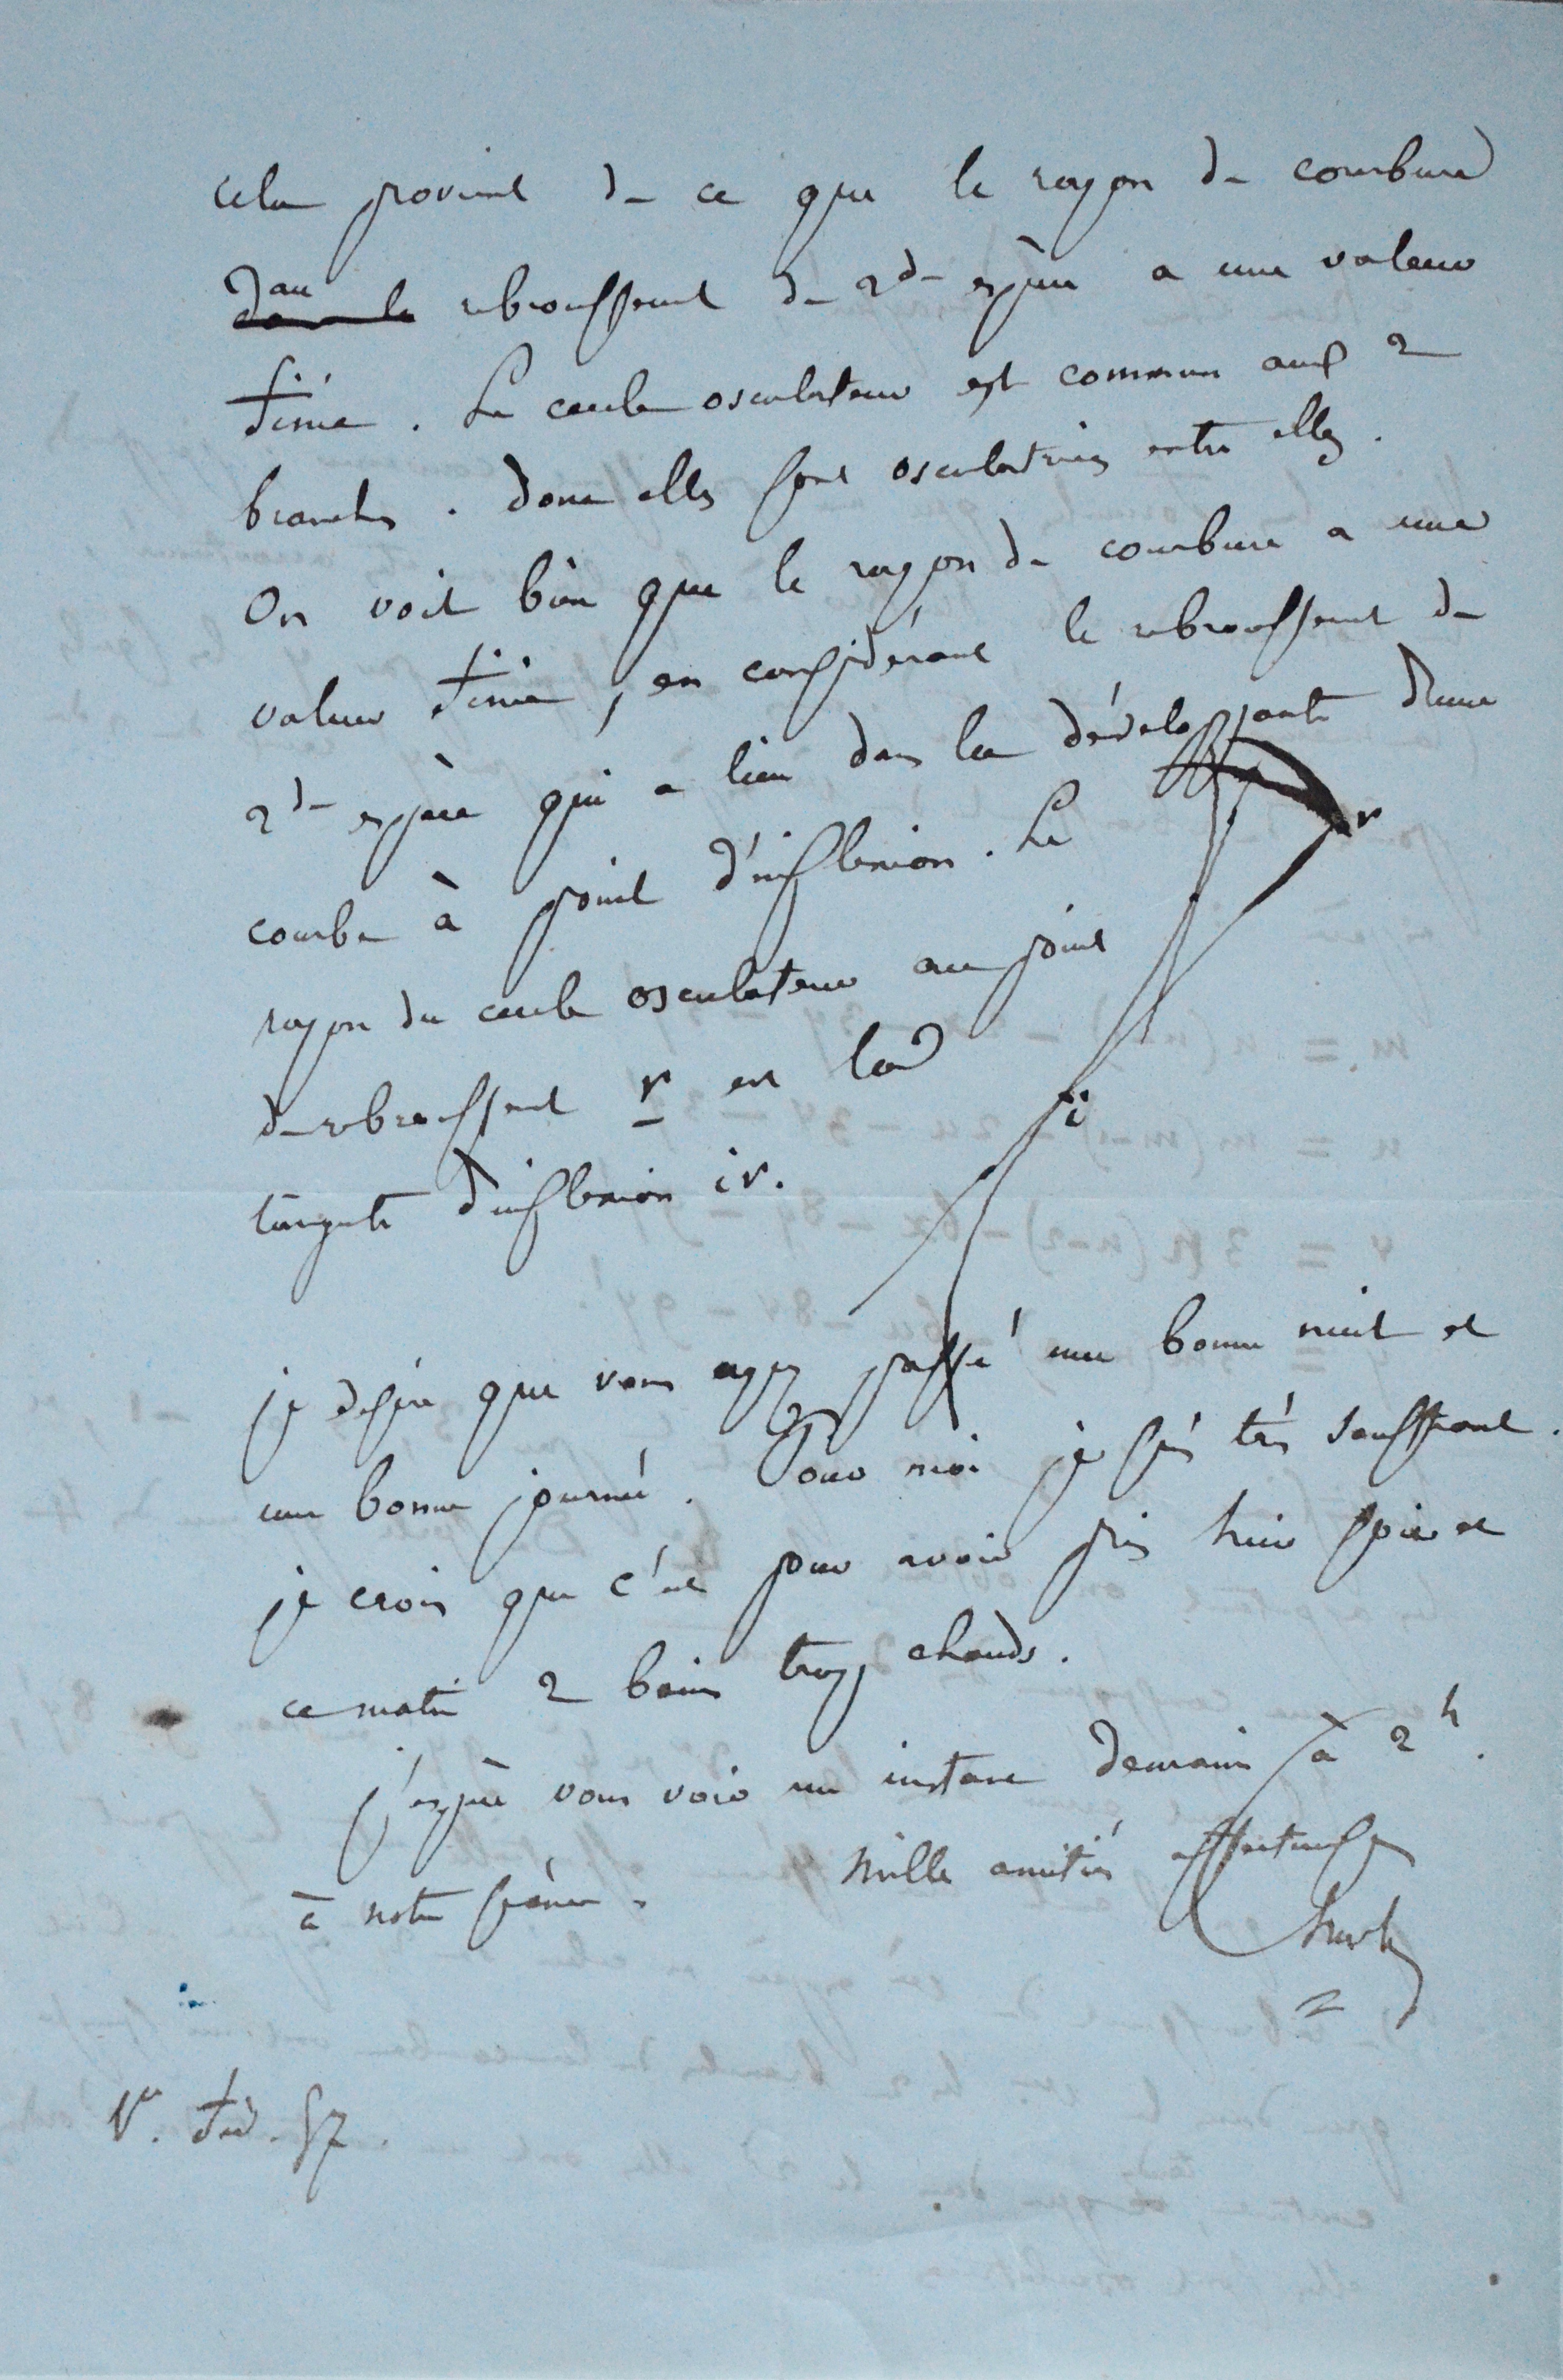 cela provient de ce que le rayon de courbure
au
dans le rebroussement de 2de espèce a une valeur
finie. Le cercle osculateur est commun aux 2
branches. donc elles sont osculatrices entre elles.
On voit bien que le rayon de courbure a une
valeur finie, en considérant le rebroussement de
2de espèce qui a lieu dans la développante d'une
courbe à point d'inflexion. Le
rayon du cercle osculateur au point
de rebroussement r est la
tangente d'inflexion ir.
r
i
je désire que vous ayez passé une bonne nuit et
une bonne journée. Pour moi je suis très souffrant.
je crois que c'est pour avoir pris hier soir et
ce matin 2 bains trop chauds.
j'espère vous voir un instant demain à 2h.
à notre séance. Mille amitiés affectueuses
Chasles
Vu. fév. 57.